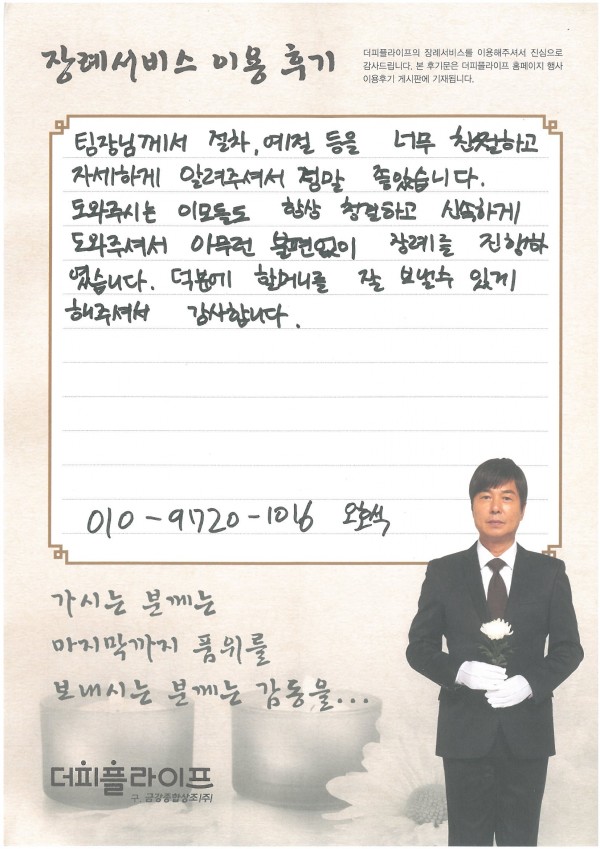 장례서비스 이용 후기
더피플라이프의 장례서비스를 이용해주셔서 진심으로
감사드립니다. 본 후기문은 더피플라이프 홈페이지 행사
이용후기 게시판에 기재됩니다.
팀장님께서 절차, 예절 등을 너무 친절하고
자세하게 알려주셔서 정말 좋았습니다.
도와주시는 이모들도 항상 청결하고 신속하게
도와주셔서 아무런 불편없이 장례를 진행하
였습니다. 덕분에 할머니를 잘 보낼수 있게
해주셔서 감사합니다.
010-9720-1016
가시는 분께는
마지막까지 품위를
보내시는 분께는 감동을...
더피플라이프
구. 금강종합상조(주)